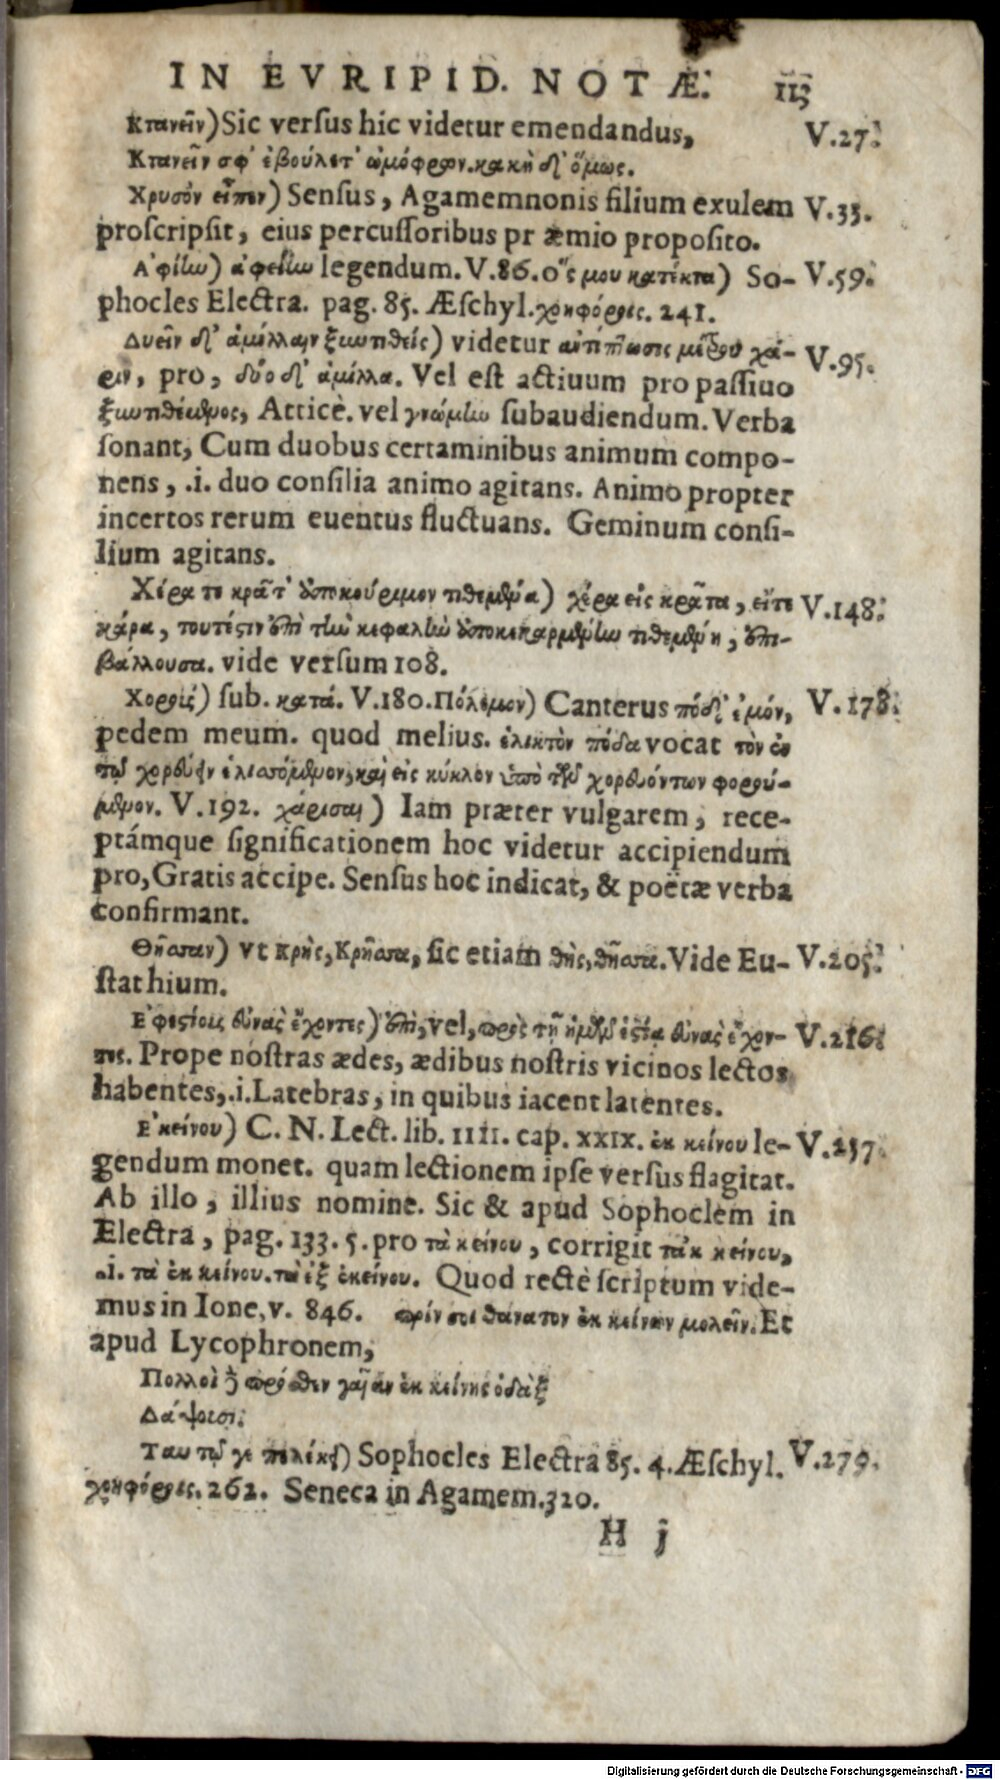 IN EVRIPID. NOTÆ. 113
Κτανεῖν) Sic versus hic videtur emendandus, V.27.
Κτανεῖν σφ' ἐβούλετ' ὠμόφρων. κακὴ δ' ὅμως.
Χρυσὸν εἶπεν) Sensus, Agamemnonis filium exulem V.33.
proscripsit, eius percussoribus præmio proposito.
Αφίω) ἀφείω legendum. V.86. Ὅς μου κατέκτα) So- V.59.
phocles Electra. pag. 85. Æschyl. χοηφόροις. 241.
Δυεῖν δ' ἁμίλλαιν ξυντιθείς) videtur ἀντίπτωσις μέτρου χά- V.95.
ριν, pro, δύο δ' ἁμίλλα. Vel est actiuum pro passiuo
ξυντιθέμενος, Atticè. vel γνώμην subaudiendum. Verba
sonant, Cum duobus certaminibus animum compo-
nens, .i. duo consilia animo agitans. Animo propter
incertos rerum euentus fluctuans. Geminum consi-
lium agitans.
Χέρα τε κρᾶτ' ὑποκούριμον τιθεμένα) χέρα εἰς κρᾶτα, εἴτε V.148.
κάρα, τουτέστιν ἐπὶ τὴν κεφαλὴν ὑποκεκαρμένην τιθεμένη, ἐπι-
βάλλουσα. vide versum 108.
Χοροῖς) sub. κατά. V.180. Πόλεμον) Canterus πόδ' ἐμόν, V.178.
pedem meum. quod melius. ἑλικτὸν πόδα vocat τὸν ἐν
τῷ χορεύειν ἑλισσόμενον, καὶ εἰς κύκλον ὑπὸ τῶν χορευόντων φορού-
μενον. V.192. χάρισαι) Iam præter vulgarem, rece-
ptámque significationem hoc videtur accipiendum
pro, Gratis accipe. Sensus hoc indicat, & poëtæ verba
confirmant.
Θῆσσαν) vt Κρὴς, Κρῆσσα, sic etiam θὴς, θῆσσα. Vide Eu- V.205.
stathium.
Εφεστίους εὐνὰς ἔχοντες) ἐπὶ, vel, πρὸς τῇ ἡμῶν ἑστίᾳ εὐνὰς ἔχον- V.216.
τες. Prope nostras ædes, ædibus nostris vicinos lectos
habentes, .i. Latebras, in quibus iacent latentes.
Εκείνου) C. N. Lect. lib. IIII. cap. XXIX. ἐκ κείνου le- V.237.
gendum monet. quam lectionem ipse versus flagitat.
Ab illo, illius nomine. Sic & apud Sophoclem in
Electra, pag. 133. 5. pro τὰ κείνου, corrigit τἀκ κείνου,
.i. τὰ ἐκ κείνου. τὰ ἐξ ἐκείνου. Quod rectè scriptum vide-
mus in Ione, v. 846. πρίν σοι θάνατον ἐκ κείνων μολεῖν. Et
apud Lycophronem,
Πολλοὶ δὲ πρόσθεν γαῖαν ἐκ κείνης ὀδὰξ
Δάψουσι.
Ταυτῷ γε πελέκει) Sophocles Electra 85. 4. Æschyl. V.279.
χοηφόροις. 262. Seneca in Agamem. 320.
H j
Digitalisierung gefördert durch die Deutsche Forschungsgemeinschaft - DFG